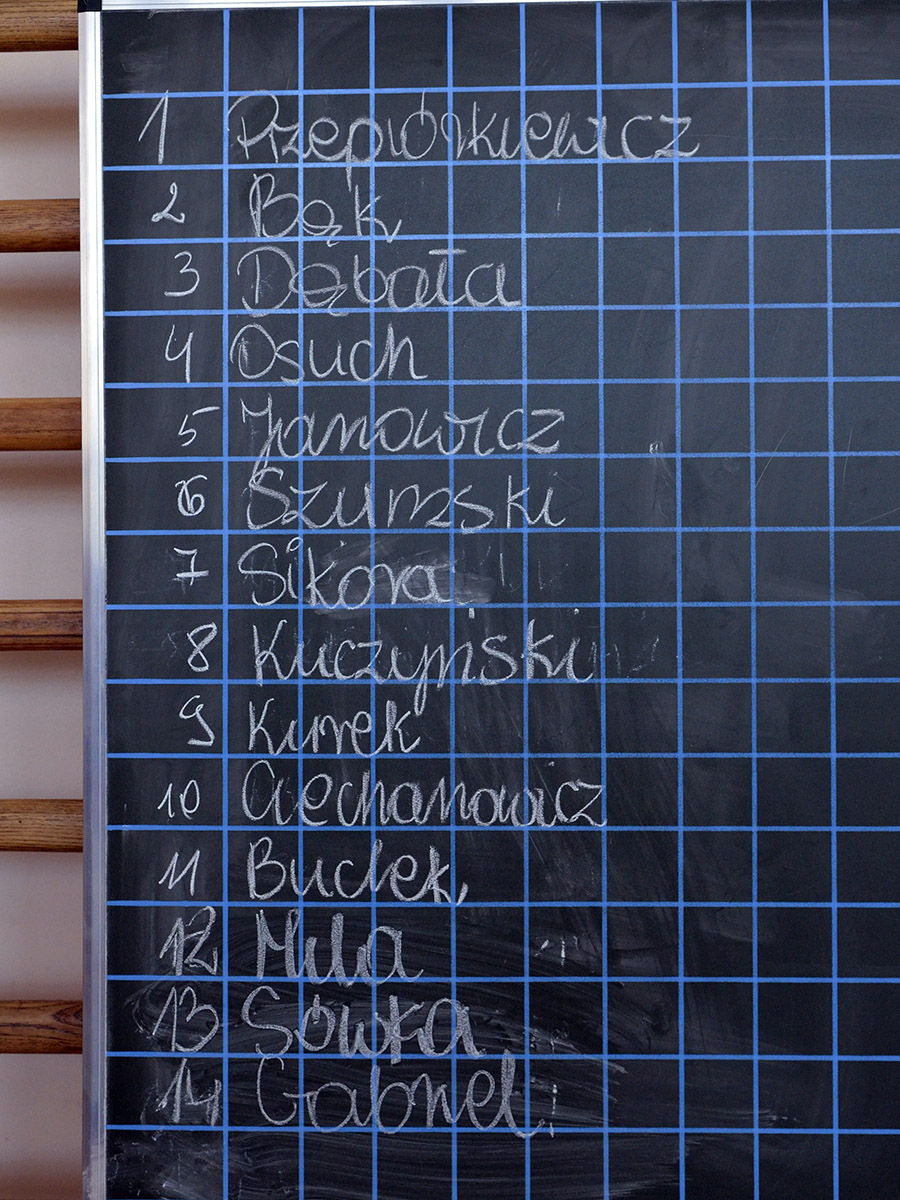 1 Przepiórkiewicz
2 Bąk
3 Dębała
4 Osuch
5 Janowicz
6 Szumski
7 Sikora
8 Kuczyński
9 Kurek
10 Ciechanowicz
11 Budek
12 Mila
13 Sówka
14 Gabriel